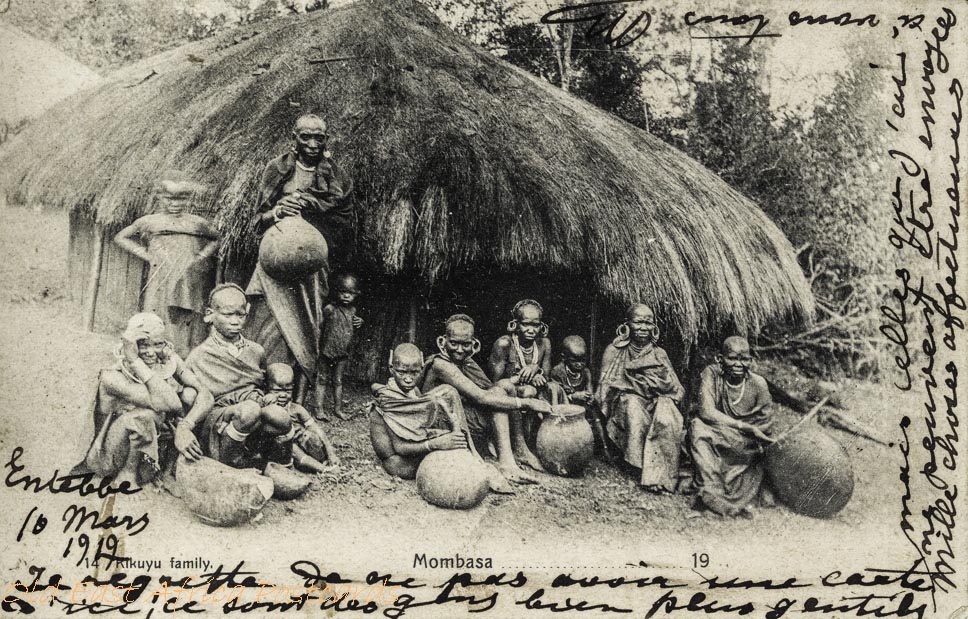 Entebbe
10 Mars
1919
14 Kikuyu family.
Mombasa
19
Je regrette de ne pas avoir une carte
d'ici, ce sont des gens bien plus gentils
mais celles qu'on d'ici
ne peuvent être envoyées
Mille choses affectueuses
et
vous tous
Old East Africa Postcards